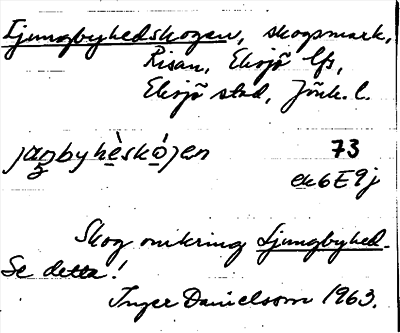 Ljungbyhedskogen, skogsmark,
Risan, Eksjö lfs,
Eksjö stad, Jönk. l.
jaŋbyhèskójen 73
ek6E9j
Skog omkring Ljungbyhed.
Se detta!
Inger Danielsson 1963.